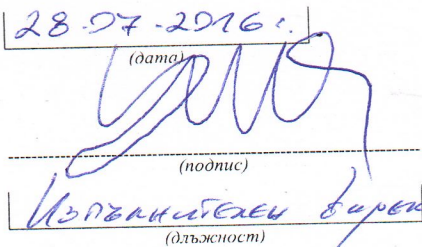 28.07.2016 г.
(дата)
(подпис)
Изпълнителен дирек
(длъжност)